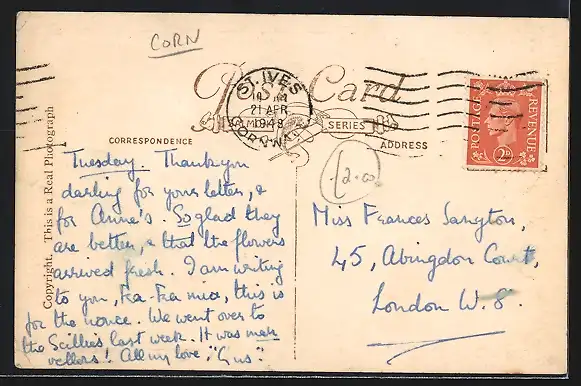 CORN
Post Card
ST. IVES
21 APR
1948
CORNWALL
SERIES
CORRESPONDENCE
ADDRESS
POSTAGE
REVENUE
2D
(2.00
Copyright. This is a Real Photograph
Tuesday. Thank you
darling for your letter, &
for Anne's. So glad they
are better, & that the flowers
arrived fresh. I am writing
to you, Fra-Fra mia, this is
for the nonce. We went over to
the Scillies last week. It was mar-
vellors! All my love, "Gus"
Miss Frances Sangton,
45, Abingdon Court,
London W. 8.